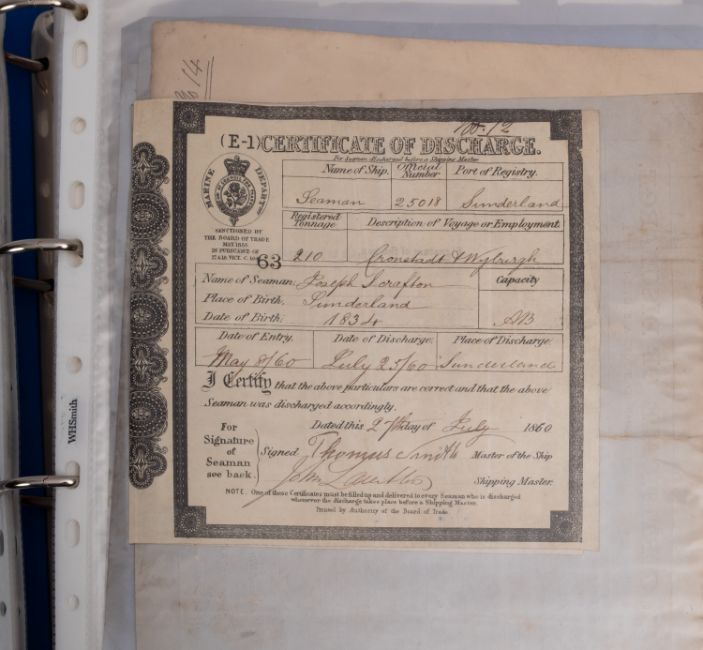 No 14
No. 12
(E-1) CERTIFICATE OF DISCHARGE.
For Seamen discharged before a Shipping Master
MARINE DEPARTMT
SANCTIONED BY
THE BOARD OF TRADE
MAY 1855
IN PURSUANCE OF
17 & 18 VICT. C. 104
63
Name of Ship. Official Number Port of Registry.
Seaman 25018 Sunderland
Registered Tonnage Description of Voyage or Employment.
210 Cronstadt & Wyburgh
Name of Seaman Joseph Scrafton Capacity
Place of Birth, Sunderland
Date of Birth: 1834 AB
Date of Entry. Date of Discharge. Place of Discharge.
May 8/60 July 25/60 Sunderland
I Certify that the above particulars are correct and that the above
Seaman was discharged accordingly.
Dated this 27th day of July 1860
For
Signature
of
Seaman
see back.
Signed Thomas Smith Master of the Ship
John Shipping Master.
NOTE. One of these Certificates must be filled up and delivered to every Seaman who is discharged
whenever the discharge takes place before a Shipping Master.
Issued by Authority of the Board of Trade.
WHSmith